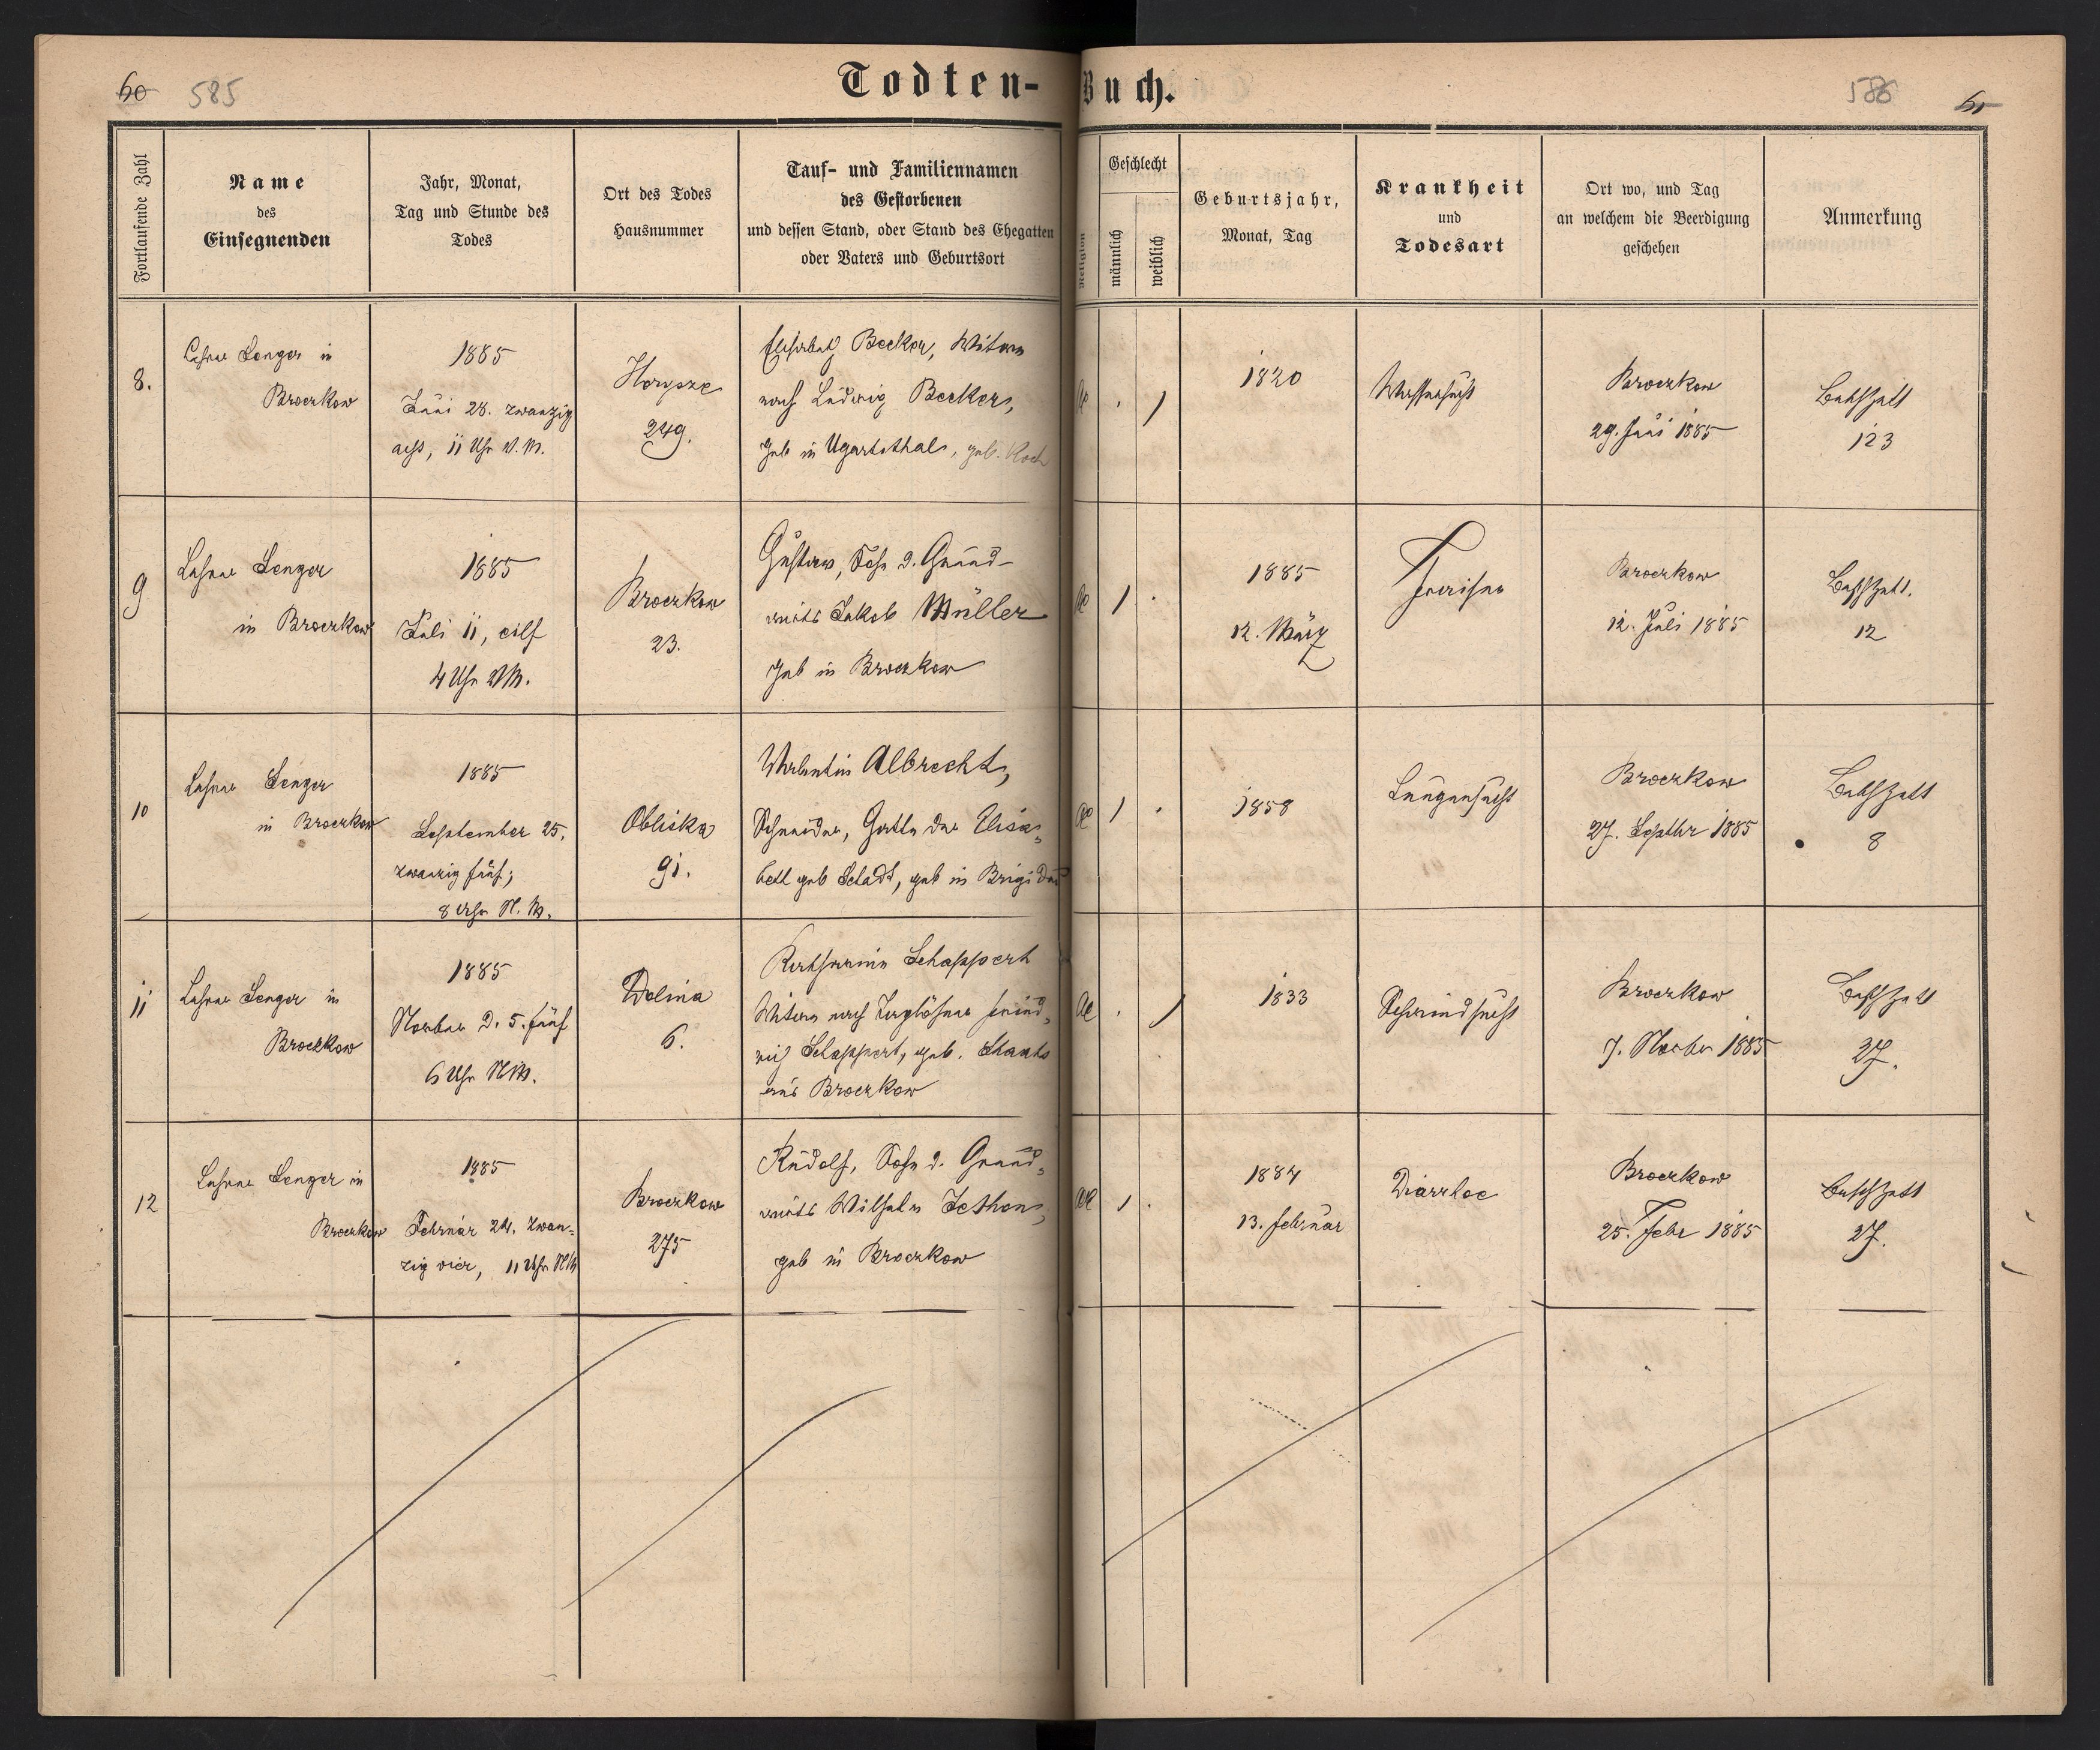 60 585
Todten-Buch.
586 61
Fortlaufende Zahl
Name
des
Einsegnenden
Jahr, Monat,
Tag und Stunde des
Todes
Ort des Todes
Hausnummer
Tauf- und Familiennamen
des Gestorbenen
und dessen Stand, oder Stand des Ehegatten
oder Vaters und Geburtsort
Religion
Geschlecht
männlich
weiblich
Geburtsjahr,
Monat, Tag
Krankheit
und
Todesart
Ort wo, und Tag
an welchem die Beerdigung
geschehen
Anmerkung
8.
Lehrer Senger in
Broczkow
1885
Juni 28. zwanzig
acht, 11 Uhr V. M.
249.
Elisabeth Becker, Witwe
nach Ludwig Becker,
geb in Ugartsthal, geb. Koch
1820
Wassersucht
Broczkow
29. Juni 1885
123
9
Lehrer Senger
in Broczkow
1885
Juli 11, eilf
4 Uhr VM.
Broczkow
23.
Gustav, Sohn d. Grund-
wirts Jakob Müller
geb in Broczkow
1
1885
12. März
Fraisen
Broczkow
12. Juli 1885
12
10
Lehrer Senger
in Broczkow
1885
September 25.
zwanzig fünf;
8 Uhr N. M.
Obliska
91.
Valentin Albrecht,
Schneider, Gatte der Elisa-
beth geb Schadt, geb in Brigidau
1
1858
Lungensucht
Broczkow
27. Septbr 1885
8
11
Lehrer Senger in
Broczkow
1885
Novber d. 5. fünf
6 Uhr NM.
Dolina
6.
Katharina Schappert
Witwe nach Taglöhner Fried-
rich Schappert, geb.
aus Broczkow
1833
Schwindsucht
Broczkow
7. Novber 1885
27.
12
Lehrer Senger in
Broczkow
1885
Februar 24. zwan-
zig vier, 11 Uhr NM
Broczkow
275
Rudolf, Sohn d. Grund-
wirts Wilhelm Jethon,
geb in Broczkow
1
1884
13. Februar
Diarrhoe
Broczkow
25. Febr 1885
27.